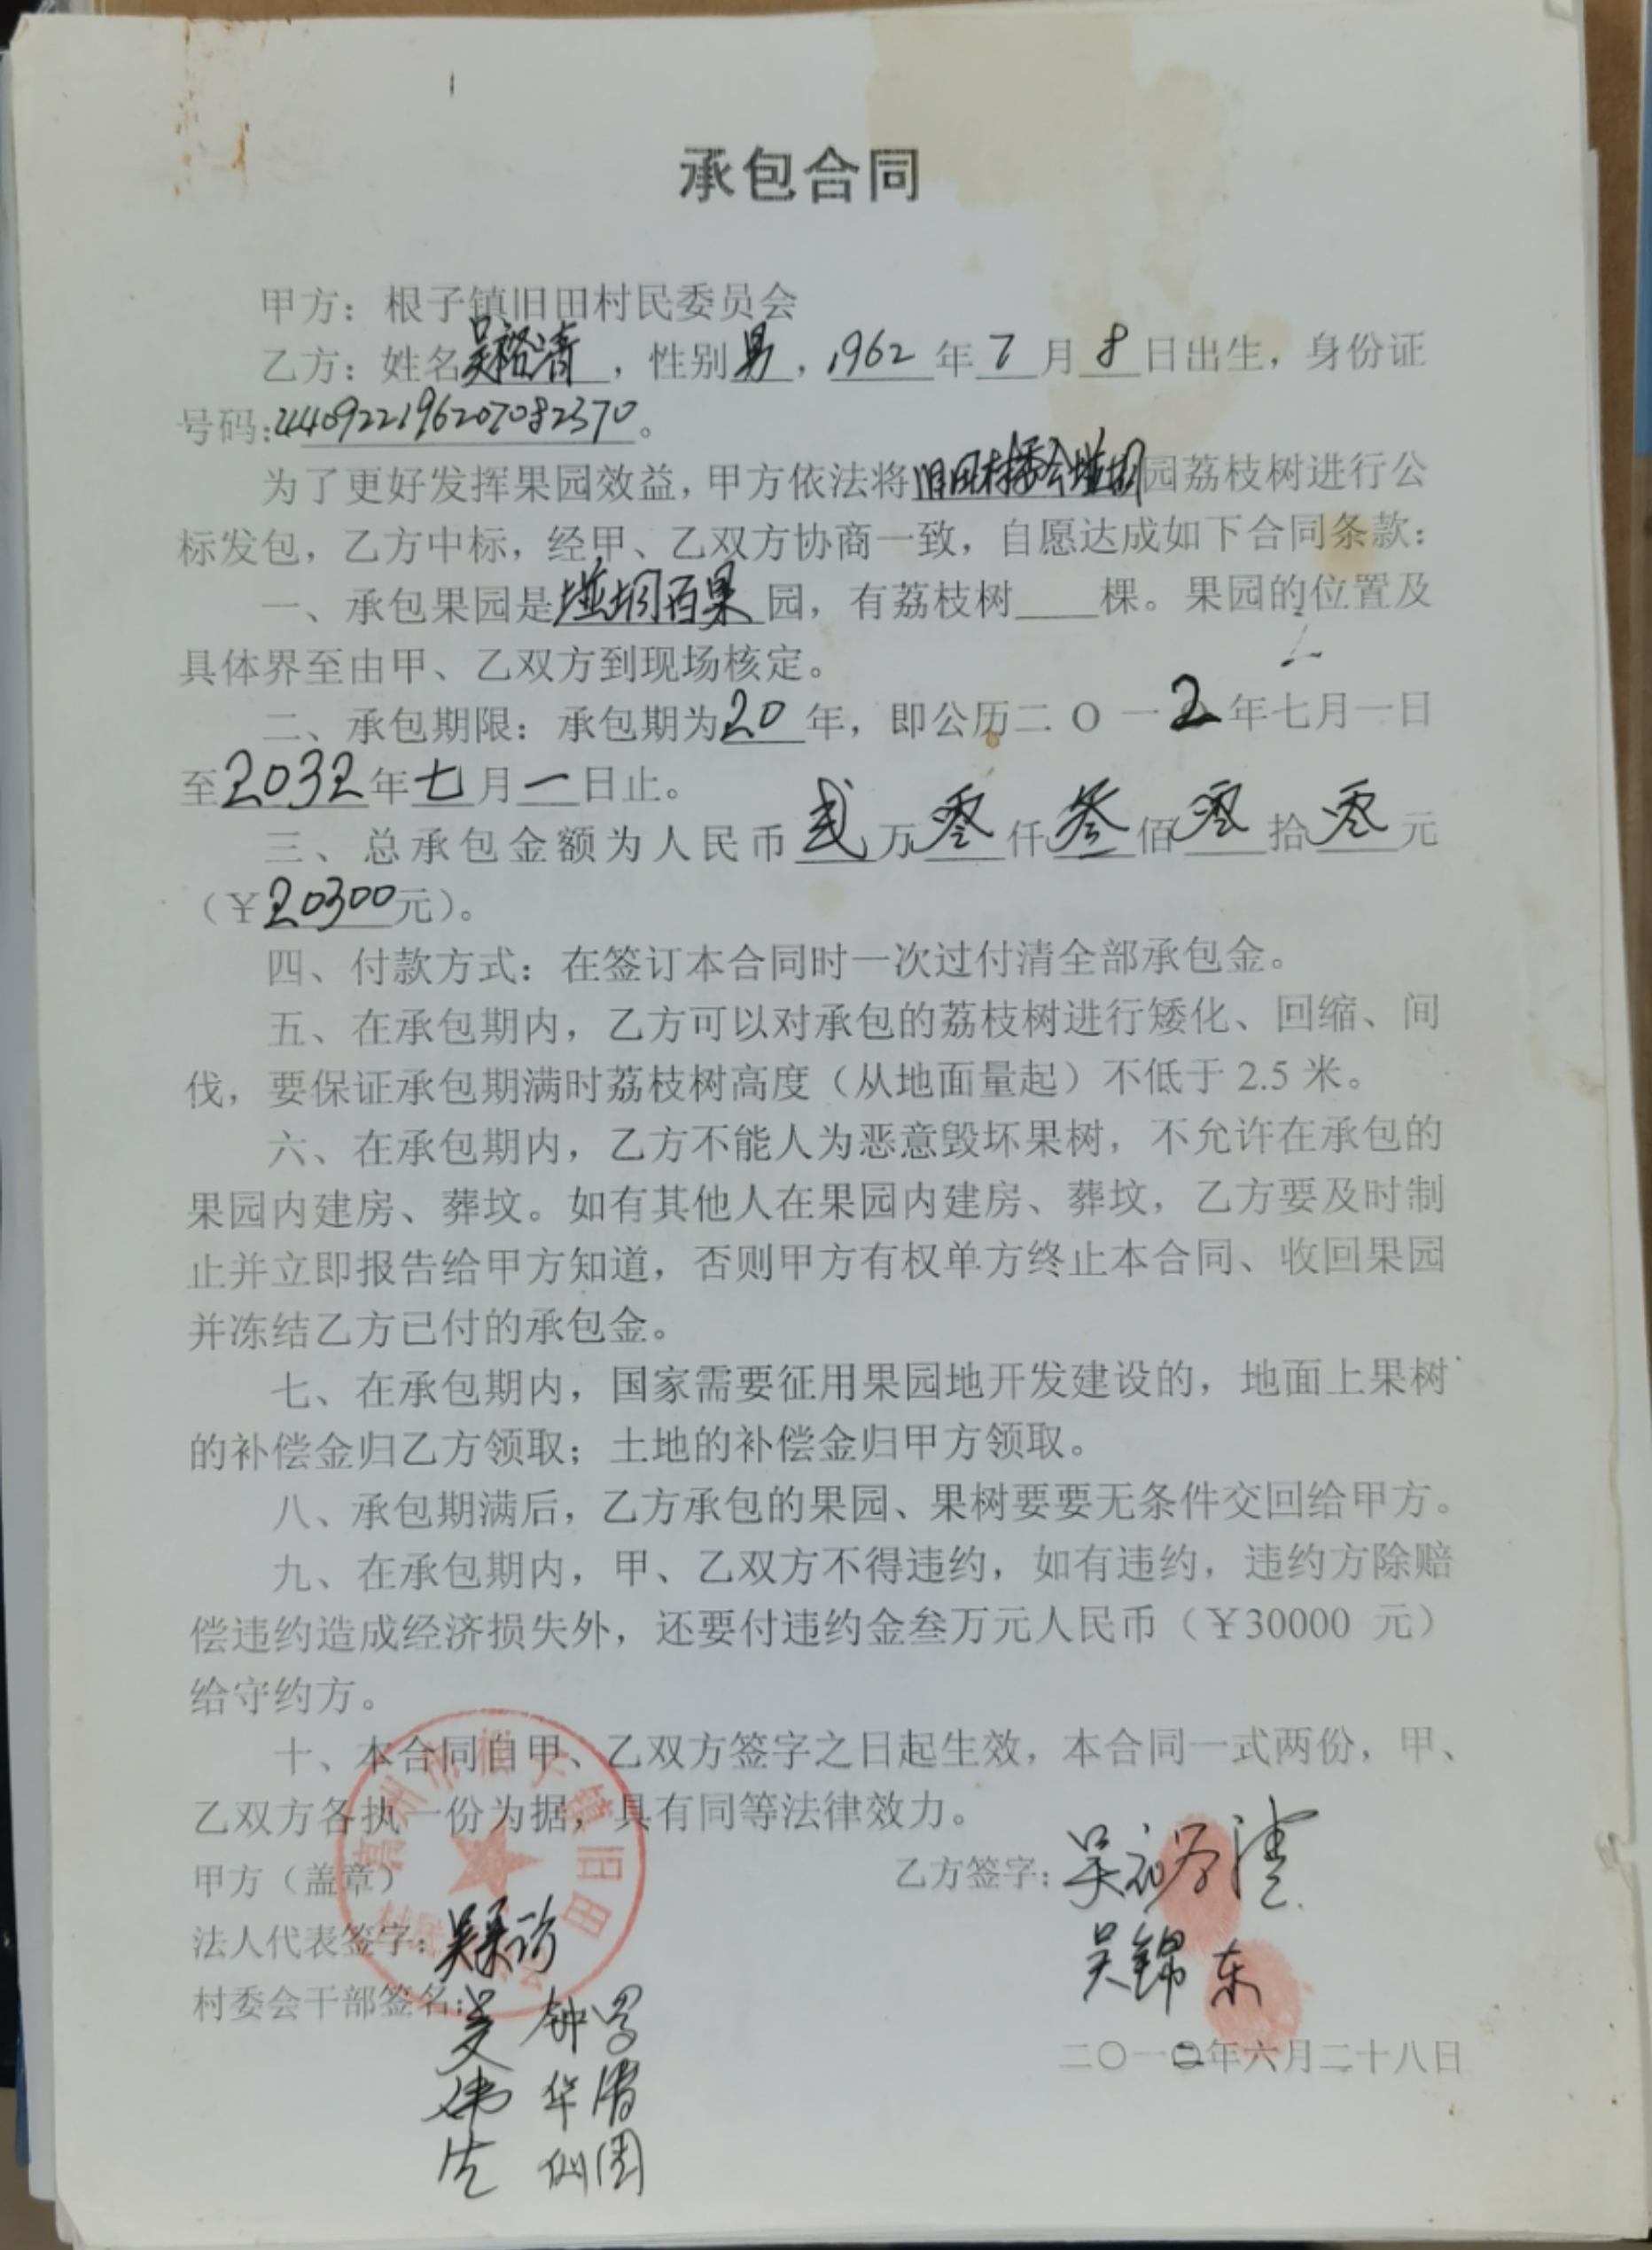 承包合同
甲方：根子镇旧田村民委员会
乙方：姓名吴裕清，性别男，1962年7月8日出生，身份证
号码：440922196207082370。
为了更好发挥果园效益，甲方依法将旧田村委会垌园荔枝树进行公
标发包，乙方中标，经甲、乙双方协商一致，自愿达成如下合同条款：
一、承包果园是垌百果园，有荔枝树____棵。果园的位置及
具体界至由甲、乙双方到现场核定。
二、承包期限：承包期为20年，即公历二〇一2年七月一日
至2032年七月一日止。
三、总承包金额为人民币贰万零仟叁佰零拾零元
（￥20300元）。
四、付款方式：在签订本合同时一次过付清全部承包金。
五、在承包期内，乙方可以对承包的荔枝树进行矮化、回缩、间
伐，要保证承包期满时荔枝树高度（从地面量起）不低于2.5米。
六、在承包期内，乙方不能人为恶意毁坏果树，不允许在承包的
果园内建房、葬坟。如有其他人在果园内建房、葬坟，乙方要及时制
止并立即报告给甲方知道，否则甲方有权单方终止本合同、收回果园
并冻结乙方已付的承包金。
七、在承包期内，国家需要征用果园地开发建设的，地面上果树
的补偿金归乙方领取；土地的补偿金归甲方领取。
八、承包期满后，乙方承包的果园、果树要要无条件交回给甲方。
九、在承包期内，甲、乙双方不得违约，如有违约，违约方除赔
偿违约造成经济损失外，还要付违约金叁万元人民币（￥30000 元）
给守约方。
十、本合同自甲、乙双方签字之日起生效，本合同一式两份，甲、
乙双方各执一份为据，具有同等法律效力。
高州市根子镇旧田
甲方（盖章）
乙方签字：吴裕清
法人代表签字：吴
吴锦东
村委会干部签名：
钟
伟 华清
生 仙周
二〇一二年六月二十八日